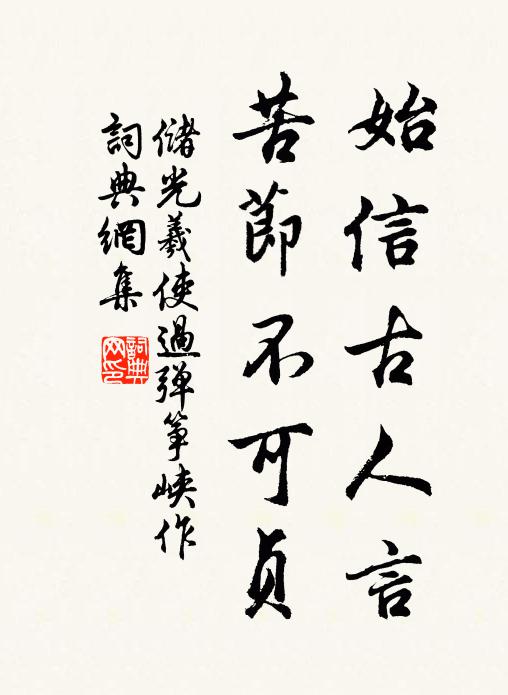 始信古人言
苦節不可貞
儲光羲使過弹筝峡作
詞典網集
詞典網印